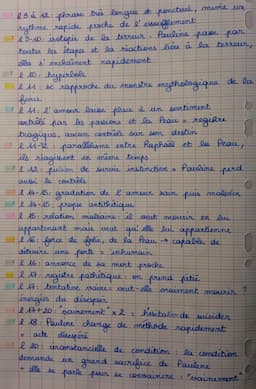 l 3 à 12: phrase très longue et ponctuée, mime un
rythme rapide proche de l'essoufflement
l 3-10: isotopie de la terreur. Pauline passe par
toutes les étapes et les réactions liées à la terreur,
elle s'enchaînent rapidement
l 10: hyperbole
l 11: se rapproche du monstre mythologique de la
furie
l 11: l'amour laisse place à un sentiment
contrôlé par les passions et la Peau = registre
tragique, aucun contrôle sur son destin
l 11-12: parallélisme entre Raphaël et la Peau,
ils réagissent en même temps
l 12: pulsion de survie instinctive = Pauline perd
aussi le contrôle
l 14-15: gradation de l'amour sain puis maladive
l 14-15: propos antithétique
l 15: relation malsaine: il veut mourir en lui
appartenant mais veut qu'elle lui appartienne
l 16: force de folie, de la Peau → capable de
détruire une porte = inhumain
l 16: annonce de sa mort proche
l 17: registre pathétique: on prend pitié
l 17: tentative vaine: veut-elle vraiment mourir?
énergies du désespoir
l 17+20: "vainement" x2:
l 18: Pauline change de méthode rapidement
= acte désespéré
l 20: circonstancielle de condition: la condition
demande un grand sacrifice de Pauline
+ elle se parle pour se convaincre "vainement"